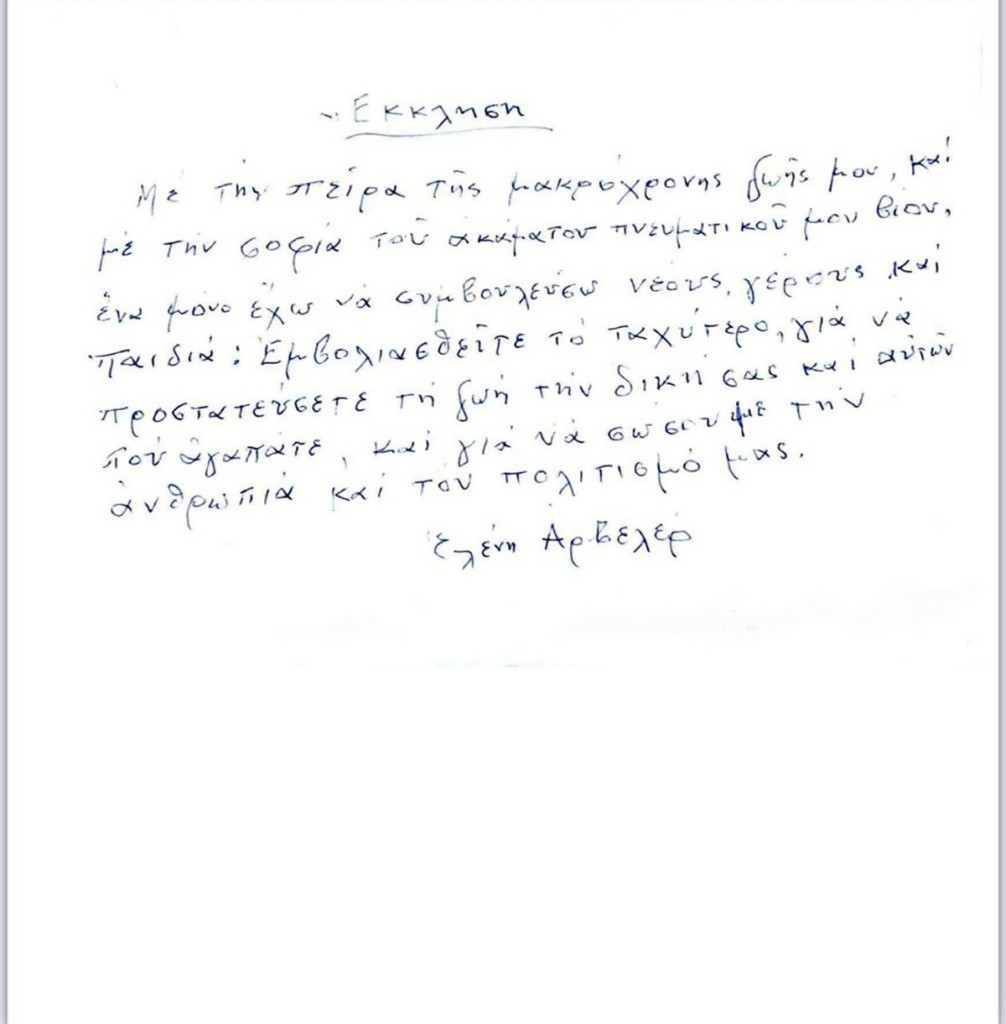 Ἔκκληση
Μὲ τὴν πείρα τῆς μακρόχρονης ζωῆς μου, καὶ
μὲ τὴν σοφία τοῦ ἀκάματου πνευματικοῦ μου βίου,
ἕνα μόνο ἔχω νὰ συμβουλεύσω νέους, γέρους καὶ
παιδιά: Ἐμβολιασθεῖτε τὸ ταχύτερο, γιὰ νὰ
προστατεύσετε τὴ ζωὴ τὴν δική σας καὶ αὐτῶν
ποὺ ἀγαπᾶτε, καὶ γιὰ νὰ σώσουμε τὴν
ἀνθρωπιὰ καὶ τὸν πολιτισμό μας.
Ἑλένη Ἀρβελέρ